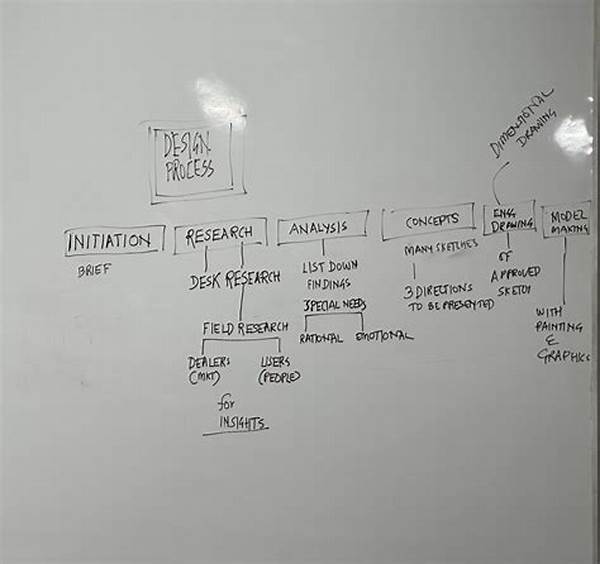 DESIGN
PROCESS
INITIATION
BRIEF
RESEARCH
DESK RESEARCH
FIELD RESEARCH
DEALERS
(MKT)
USERS
(PEOPLE)
for
INSIGHTS
ANALYSIS
LIST DOWN
FINDINGS
SPECIAL NEEDS
RATIONAL
EMOTIONAL
CONCEPTS
MANY SKETCHES
3 DIRECTIONS
TO BE PRESENTED
DIMENTIONAL
DRAWING
ENGG
DRAWING
OF
APPROVED
SKETCH
MODEL
MAKING
WITH
PAINTING
&
GRAPHICS